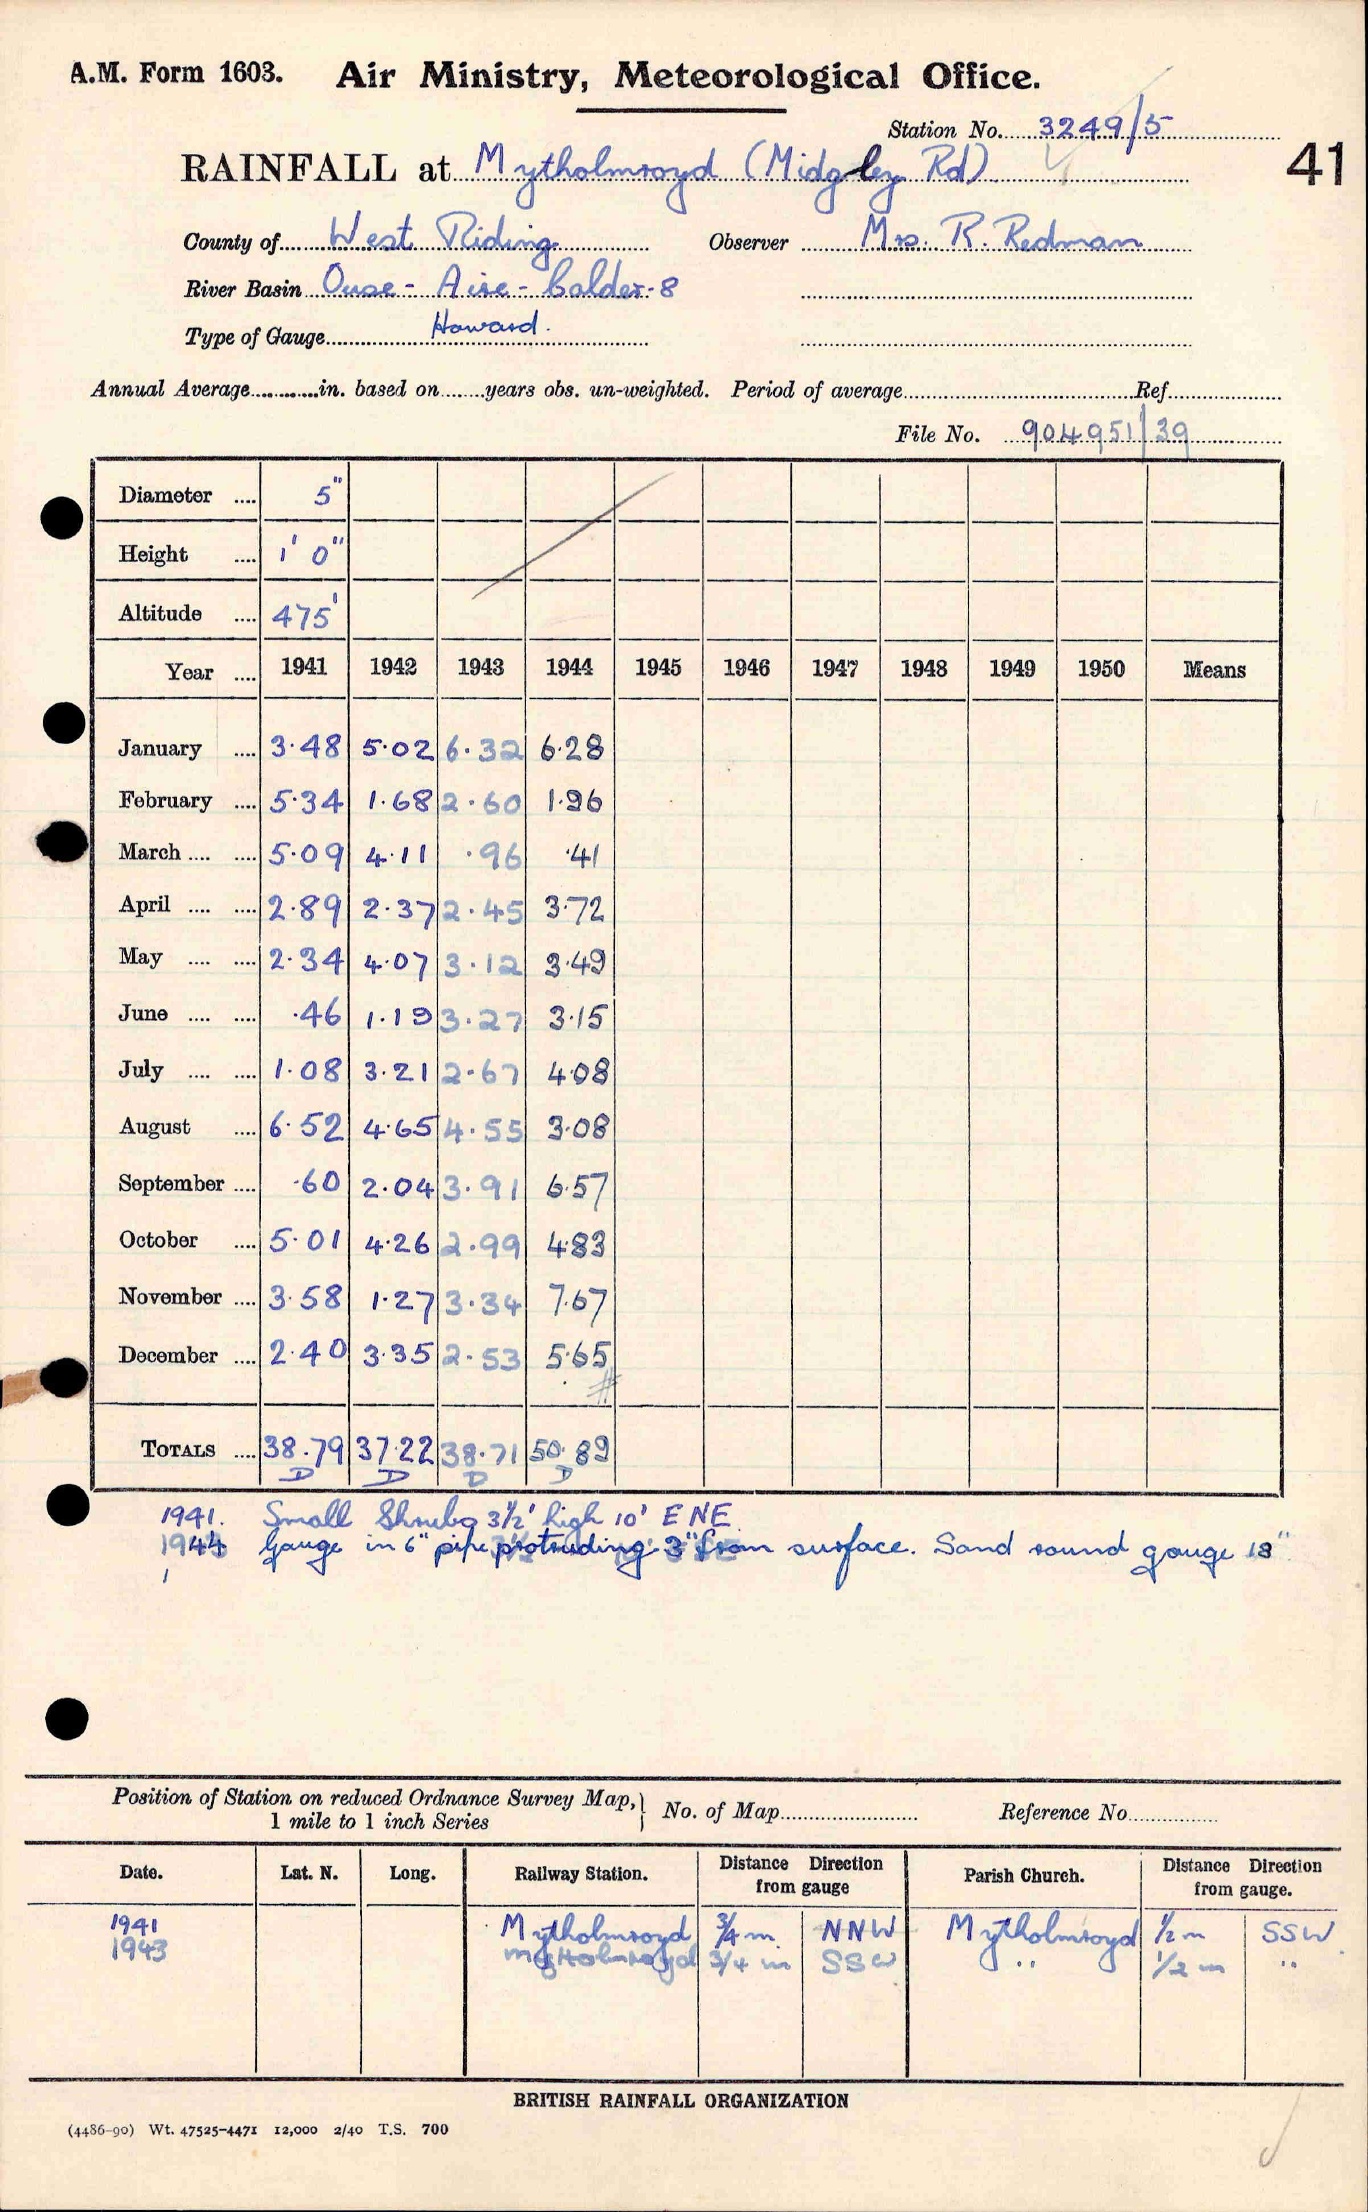 A.M. Form 1603. Air Ministry, Meteorological Office.
Station No. 3249/5
41
RAINFALL at Mytholmroyd (Midgley Rd)
County of West Riding Observer Mrs. R. Redman
River Basin Ouse - Aire - Calder - 8
Type of Gauge Howard.
Annual Average in. based on years obs. un-weighted. Period of average Ref.
File No. 904951/39
Diameter .... 5"
Height .... 1' 0"
Altitude .... 475'
Year .... 1941 1942 1943 1944 1945 1946 1947 1948 1949 1950 Means
January .... 3.48 5.02 6.32 6.28
February .... 5.34 1.68 2.60 1.96
March .... .... 5.09 4.11 .96 .41
April .... .... 2.89 2.37 2.45 3.72
May .... .... 2.34 4.07 3.12 3.49
June .... .... .46 1.19 3.27 3.15
July .... .... 1.08 3.21 2.67 4.08
August .... 6.52 4.65 4.55 3.08
September .... .60 2.04 3.91 6.57
October .... 5.01 4.26 2.99 4.83
November .... 3.58 1.27 3.34 7.67
December .... 2.40 3.35 2.53 5.65
#
TOTALS .... 38.79 37.22 38.71 50.89
D D D D
1941. Small Shrubs 3½' high 10' ENE
1944 Gauge in 6" pipe protruding 3" from surface. Sand round gauge 18"
Position of Station on reduced Ordnance Survey Map, 1 mile to 1 inch Series } No. of Map Reference No.
Date. Lat. N. Long. Railway Station. Distance Direction from gauge Parish Church. Distance Direction from gauge.
1941 Mytholmroyd ¾ m. NNW Mytholmroyd ½ m SSW
1943 Mytholmroyd 3/4 m SSW " 1/2 m "
BRITISH RAINFALL ORGANIZATION
(4486-90) Wt. 47525-4471 12,000 2/40 T.S. 700